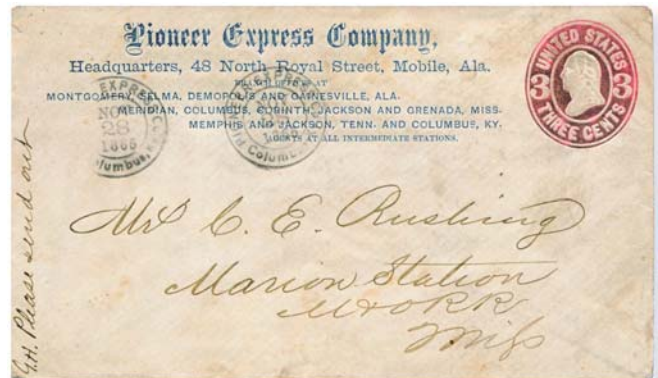 Pioneer Express Company,
Headquarters, 48 North Royal Street, Mobile, Ala.
BRANCH OFFICES AT
MONTGOMERY, SELMA, DEMOPOLIS AND GAINESVILLE, ALA.
MERIDIAN, COLUMBUS, CORINTH, JACKSON AND GRENADA, MISS.
MEMPHIS AND JACKSON, TENN. AND COLUMBUS, KY.
AGENTS AT ALL INTERMEDIATE STATIONS.
UNITED STATES
3 3
THREE CENTS
EXPRESS CO.
NOV
28
1866
Columbus, Ky.
EXPRESS CO.
Columbus
Mr C. E. Rushing
Marion Station
M & O RR
Miss
G.H. Please send out